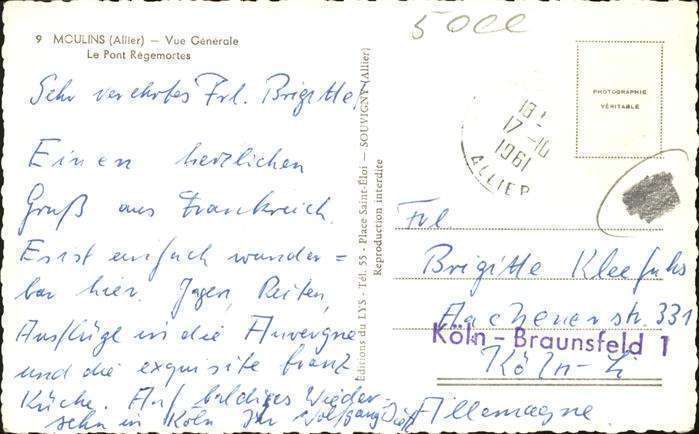 50cc
9 MOULINS (Allier) — Vue Générale
Le Pont Régemortes
Sehr verehrtes Frl. Brigitte,
Einen herzlichen
Gruß aus Frankreich.
Es ist einfach wunder=
bar hier. Jagen, Reiten,
Ausflüge in die Auvergne
und die exquisite franz.
Küche. Auf baldiges Wieder-
sehn in Köln Ihr Wolfgang
Editions du LYS - Tél. 55 - Place Saint-Éloi — SOUVIGNY (Allier)
Reproduction interdite
PHOTOGRAPHIE
VÉRITABLE
17-10
1961
ALLIER
Frl
Brigitte Kleefuhs
Aachenerstr. 331
Köln-Braunsfeld 1
Köln-
Allemagne.